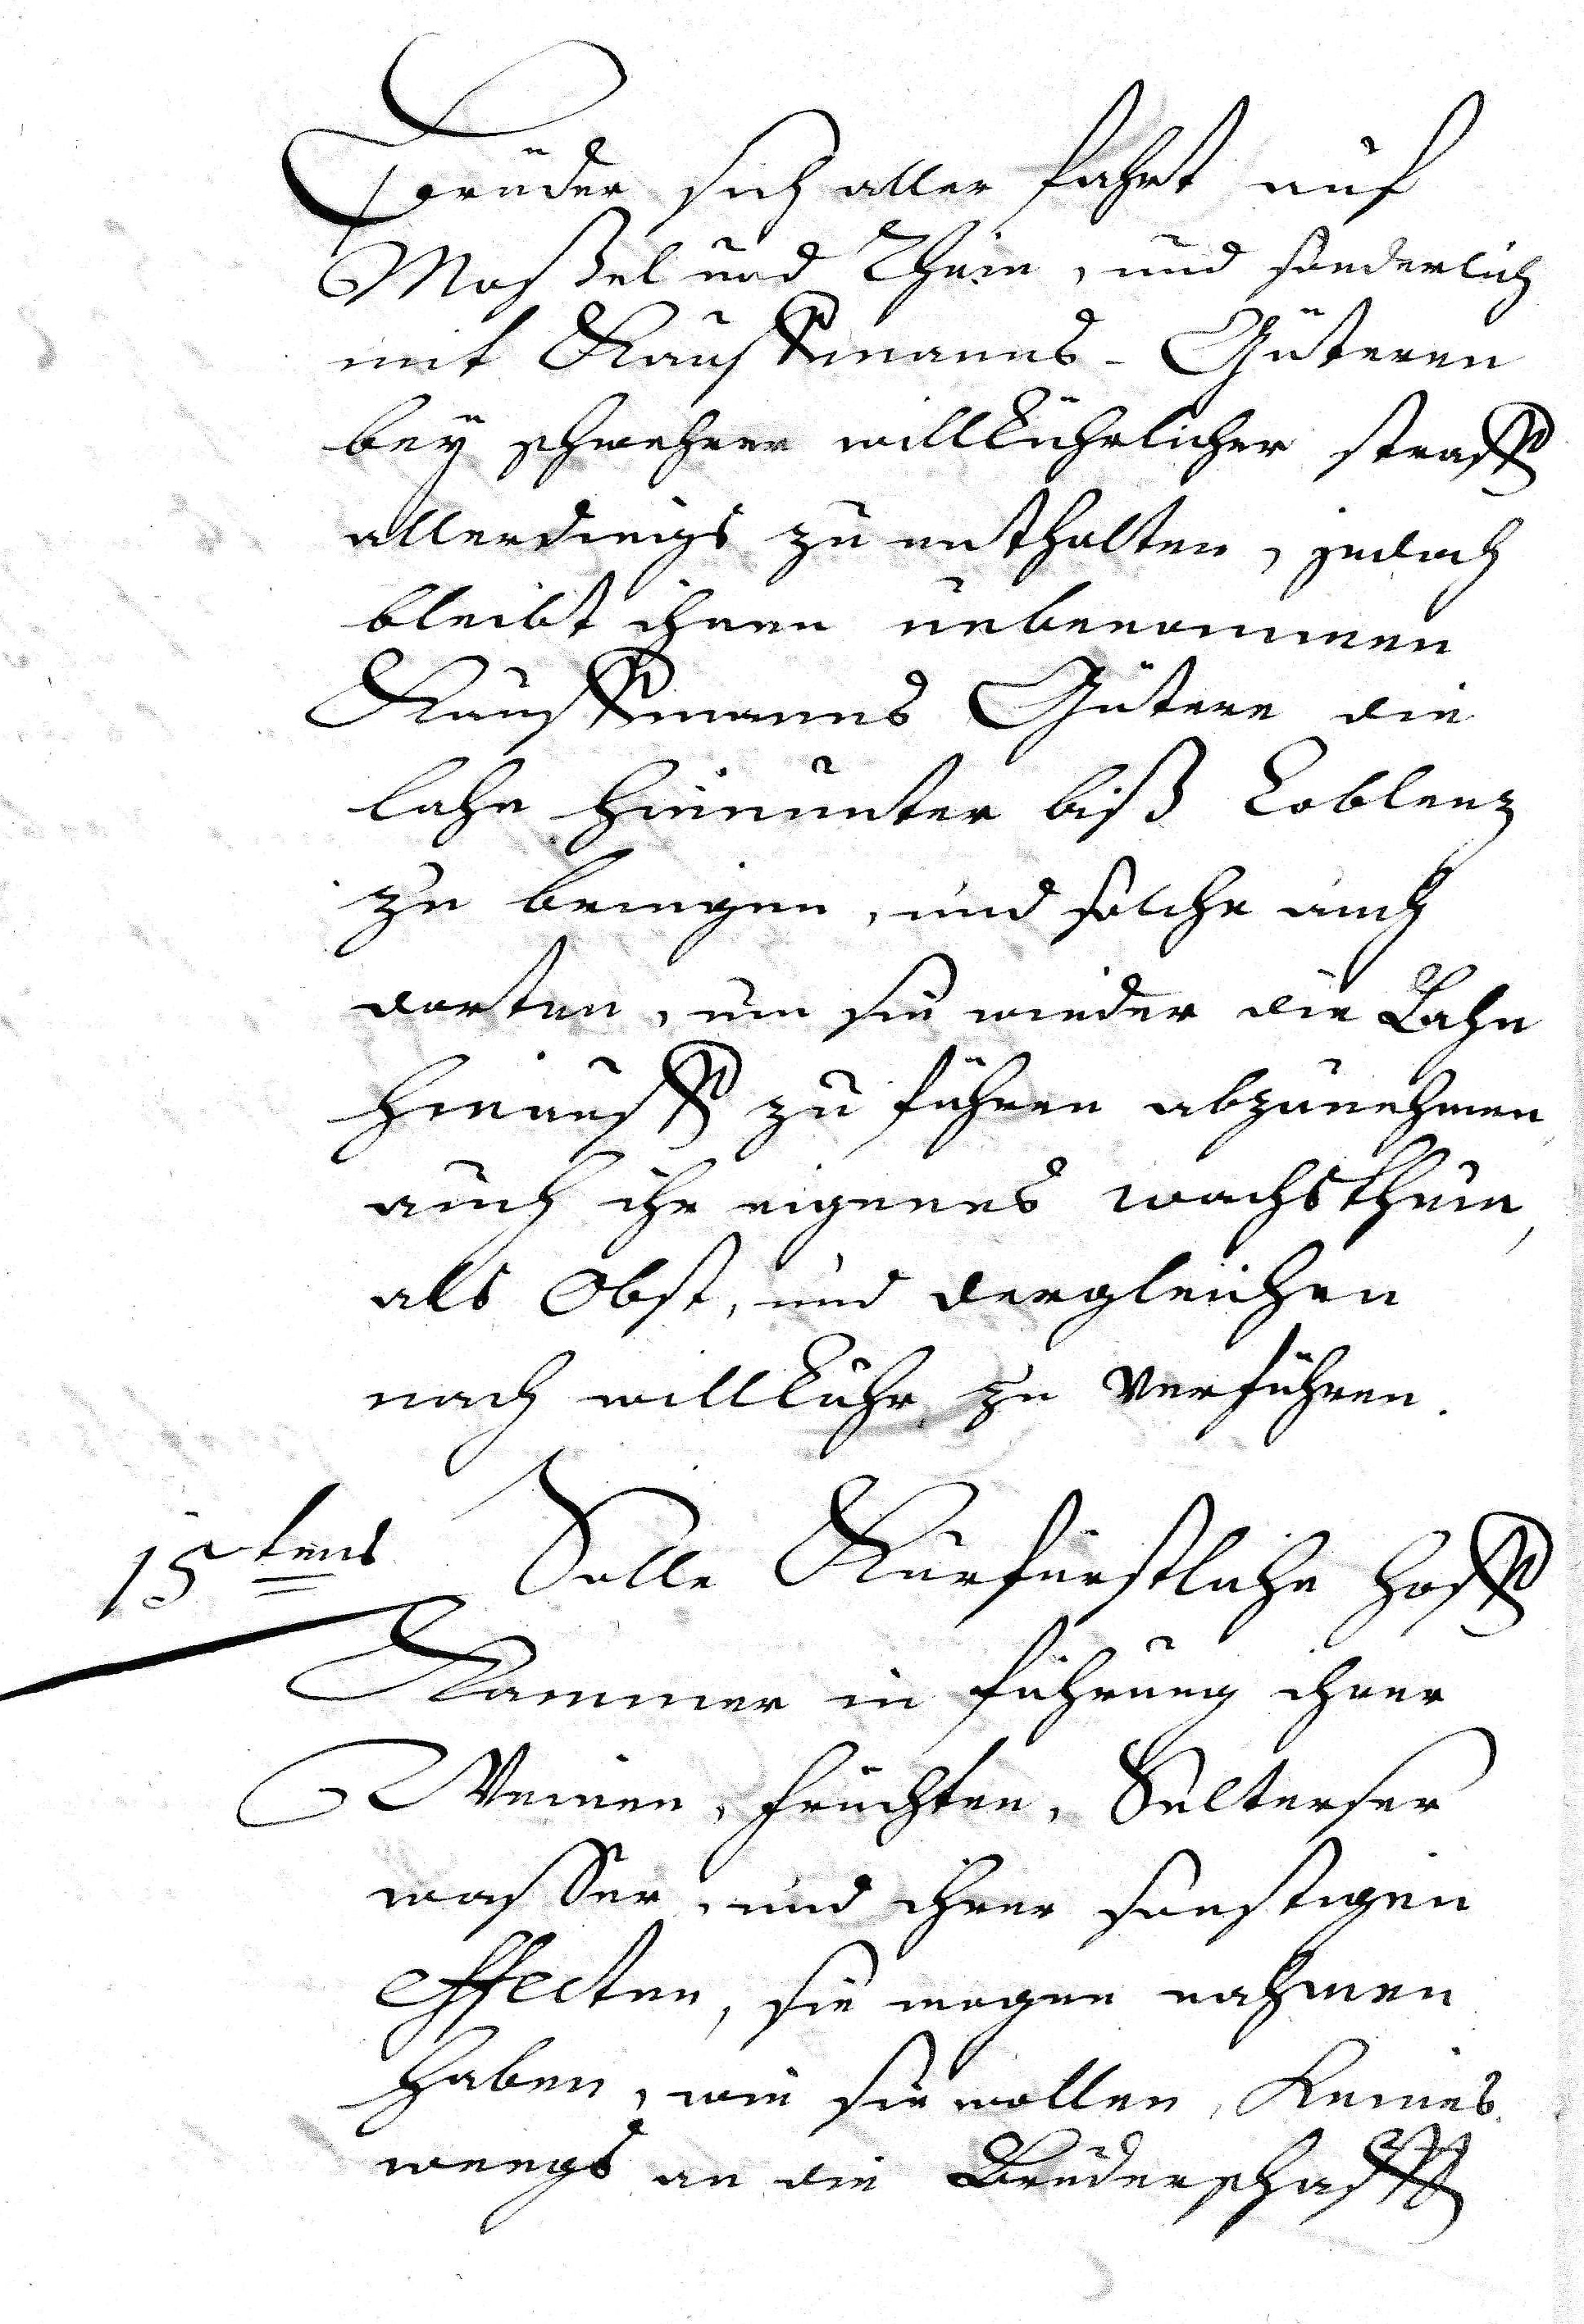 Brüder sich aller fahrt auf
Moßel und Rhein, und sonderlich
mit Kauffmanns-Güteren
bey schwehrer willkührlicher straff
allerdings zu enthalten, jedoch
bleibt ihnen unbenommen
Kauffmanns Gütere die
lahn hinunter biß Coblenz
zu bringen, und solche auch
dorten, um sie wieder die Lahn
hinauff zu führen abzunehmen,
auch ihr eigenes wachsthum,
als Obst, und dergleichen
nach willkühr zu verführen.
15tens Solle Kurfürstliche hoff
Kammer in führung ihrer
Weinen, früchten, Selterser
wasser, und ihrer sonstigen
effecten, sie mögen nahmen
haben, wie sie wollen, keines
weegs an die Bruderschafft